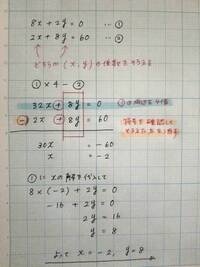 8x + 2y = 0 … ①
2x + 8y = 60 … ②
どちらかの (x, y) の係数をそろえる
① × 4 - ②
32x + 8y = 0
①の両辺を4倍
- 2x + 8y = 60
符号を確認して
30x = -60
x = -2
①に xの解を代入して
8 × (-2) + 2y = 0
-16 + 2y = 0
2y = 16
y = 8
よって x = -2, y = 8